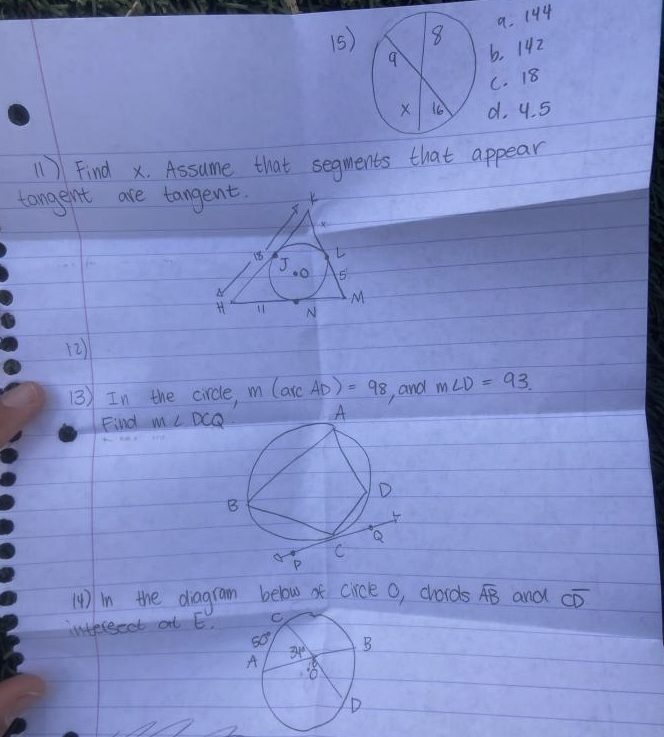 15)
8
9
x
16
a. 144
b. 142
c. 18
d. 4.5
11) Find x. Assume that segments that appear
tangent are tangent.
K
x
18
J
L
O
5
H
11
N
M
12)
13) In the circle, m (arc AD) = 98, and m∠D = 93.
Find m∠DCQ
A
B
D
Q
C
P
14) In the diagram below of circle O, chords AB and CD
intersect at E.
C
50°
B
34°
A
O
D